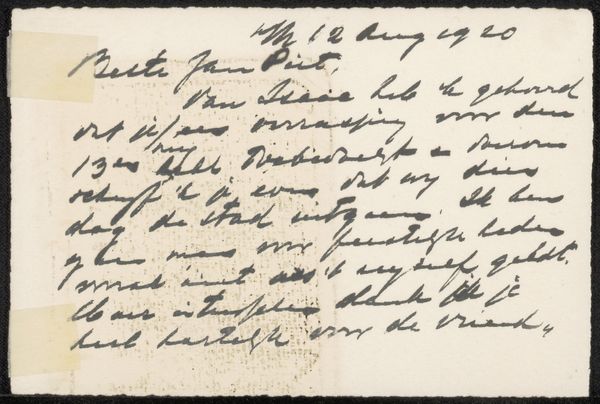 12 Aug 1920
Beste Jan Piet,
Van Isaac heb ik gehoord
dat jij een verrassing voor den
13en my hebt toebedacht en daarom
schrijf ik je even dat wij dien
dag de stad uitgaan. Ik ben
geen man voor feestelijkheden
vooral niet als 't myself geldt.
Maar intusschen dank ik je
heel hartelijk voor de vriend„